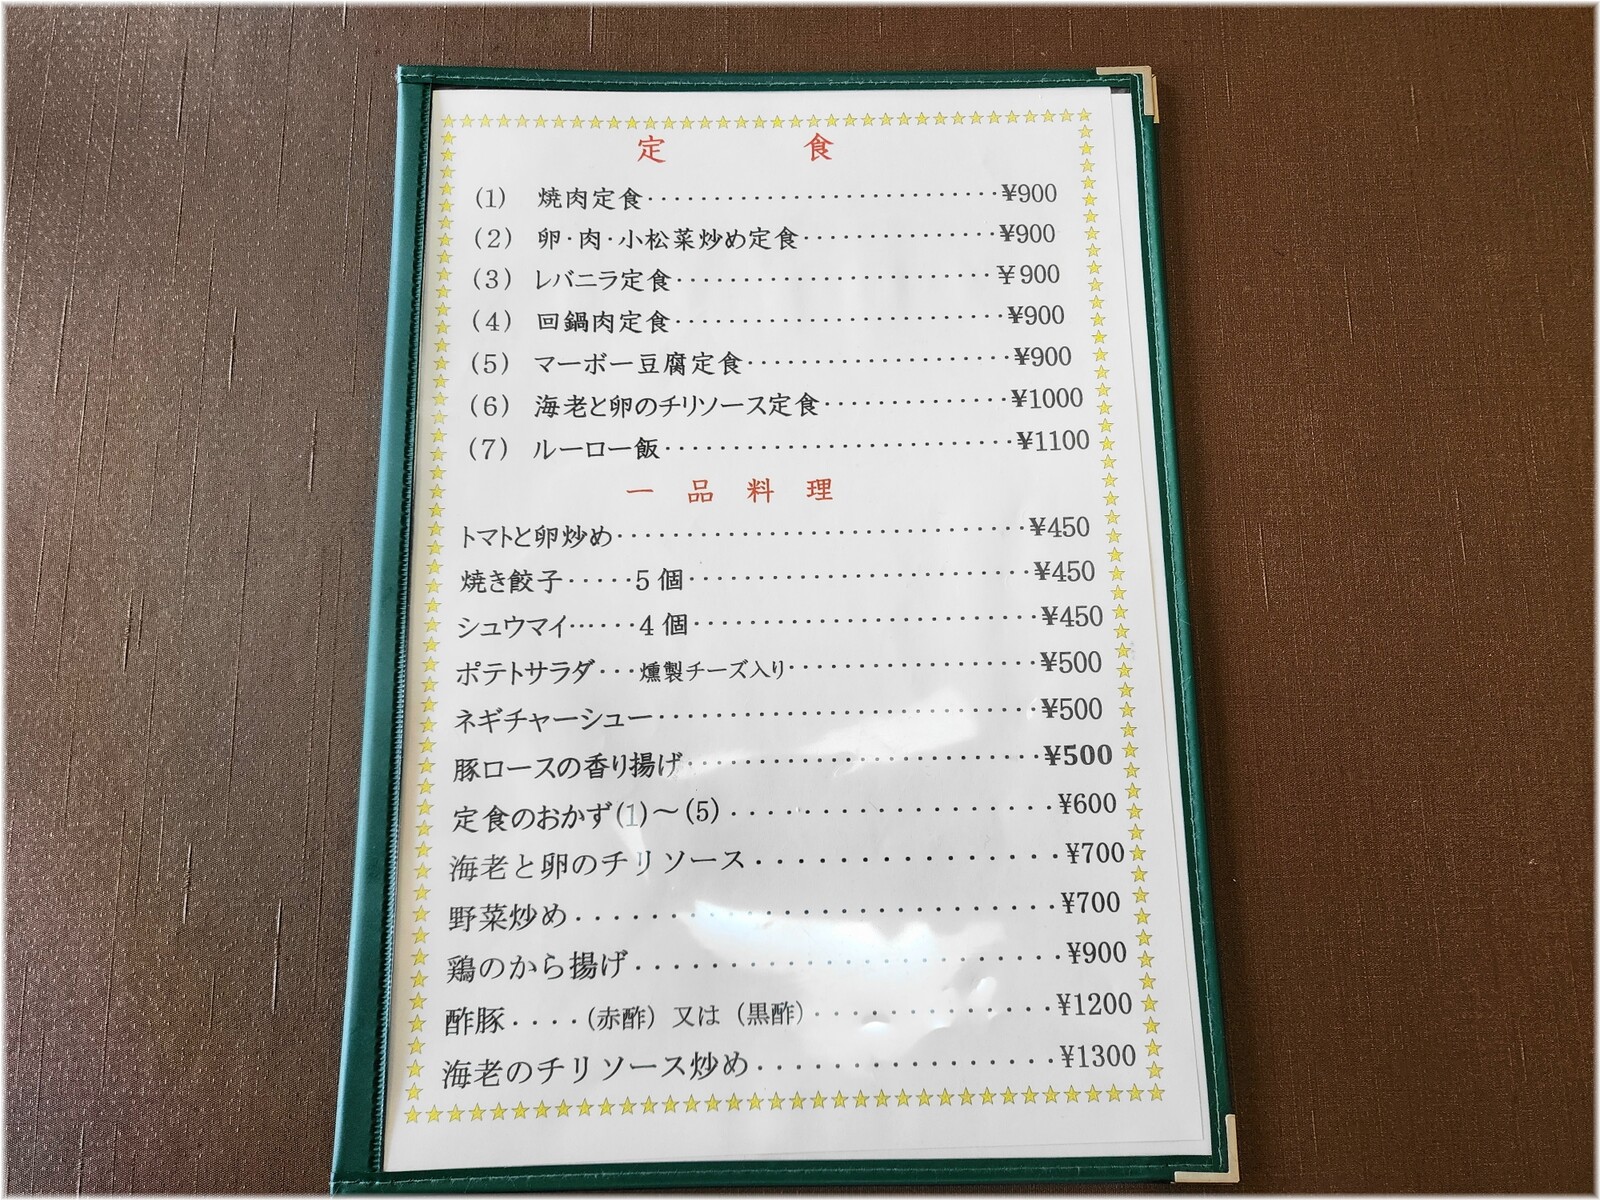 定 食
(1) 焼肉定食・・・・・・・・・・・・・・・・・・・・・・・・・・・¥900
(2) 卵・肉・小松菜炒め定食・・・・・・・・・・・・・・・¥900
(3) レバニラ定食・・・・・・・・・・・・・・・・・・・・・・・・¥900
(4) 回鍋肉定食・・・・・・・・・・・・・・・・・・・・・・・・・¥900
(5) マーボー豆腐定食・・・・・・・・・・・・・・・・・・・・¥900
(6) 海老と卵のチリソース定食・・・・・・・・・・・・・・¥1000
(7) ルーロー飯・・・・・・・・・・・・・・・・・・・・・・・・・・¥1100
一 品 料 理
トマトと卵炒め・・・・・・・・・・・・・・・・・・・・・・・・・・・・・・・¥450
焼き餃子・・・・・5個・・・・・・・・・・・・・・・・・・・・・・・・・・¥450
シュウマイ・・・・・・4個・・・・・・・・・・・・・・・・・・・・・・・・・・¥450
ポテトサラダ・・・燻製チーズ入り・・・・・・・・・・・・・・・・・・・¥500
ネギチャーシュー・・・・・・・・・・・・・・・・・・・・・・・・・・・・・¥500
豚ロースの香り揚げ・・・・・・・・・・・・・・・・・・・・・・・・・・・¥500
定食のおかず(1)～(5)・・・・・・・・・・・・・・・・・¥600
海老と卵のチリソース・・・・・・・・・・・・・・・・¥700
野菜炒め・・・・・・・・・・・・・・・・・・・・・・・・・¥700
鶏のから揚げ・・・・・・・・・・・・・・・・・・・・・・¥900
酢豚・・・・(赤酢) 又は (黒酢)・・・・・・・・・・・・・¥1200
海老のチリソース炒め・・・・・・・・・・・・・・・・¥1300